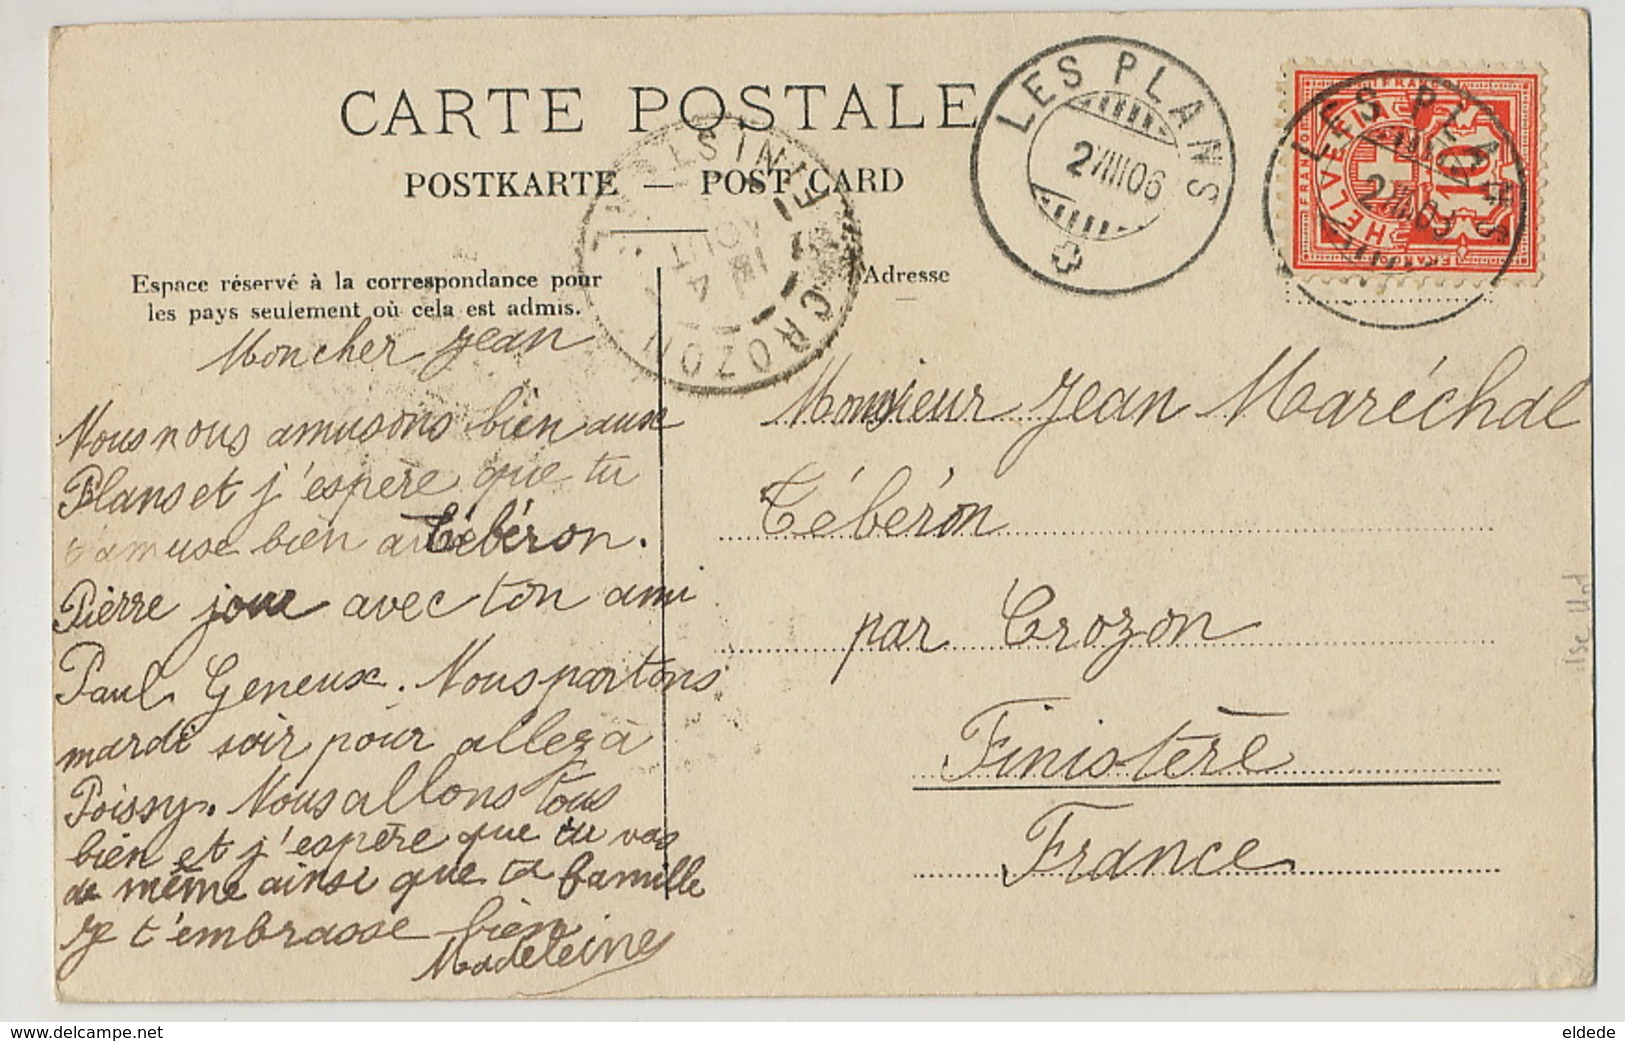 CARTE POSTALE
POSTKARTE — POST CARD
Espace réservé à la correspondance pour
les pays seulement où cela est admis.
Adresse
LES PLANS
2 VIII 06
LES PLANS
2 VIII 06
FRANCO
HELVETIA
10
CROZON
FINISTÈRE
4
AOUT
Mon cher Jean
Nous nous amusons bien aux
Plans et j'espère que tu
t'amuse bien a Tébéron.
Pierre joue avec ton ami
Paul Geneux. Nous partons
mardi soir pour allez à
Poissy. Nous allons tous
bien et j'espère que tu vas
de même ainsi que ta famille
Je t'embrasse bien
Madeleine
Monsieur Jean Maréchal
Tébéron
par Crozon
Finistère
France
eldede